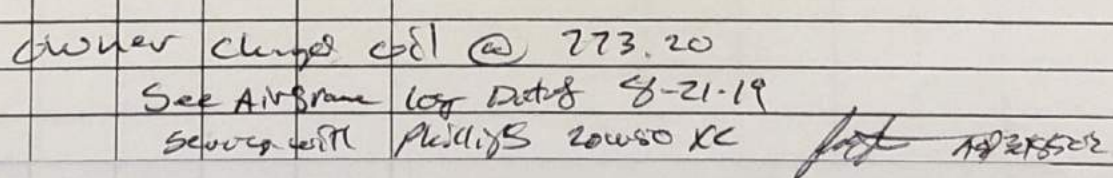 owner changed oil @ 773.20
See Airframe log Dated 8-21-19
Service with Phillips 20w50 XC